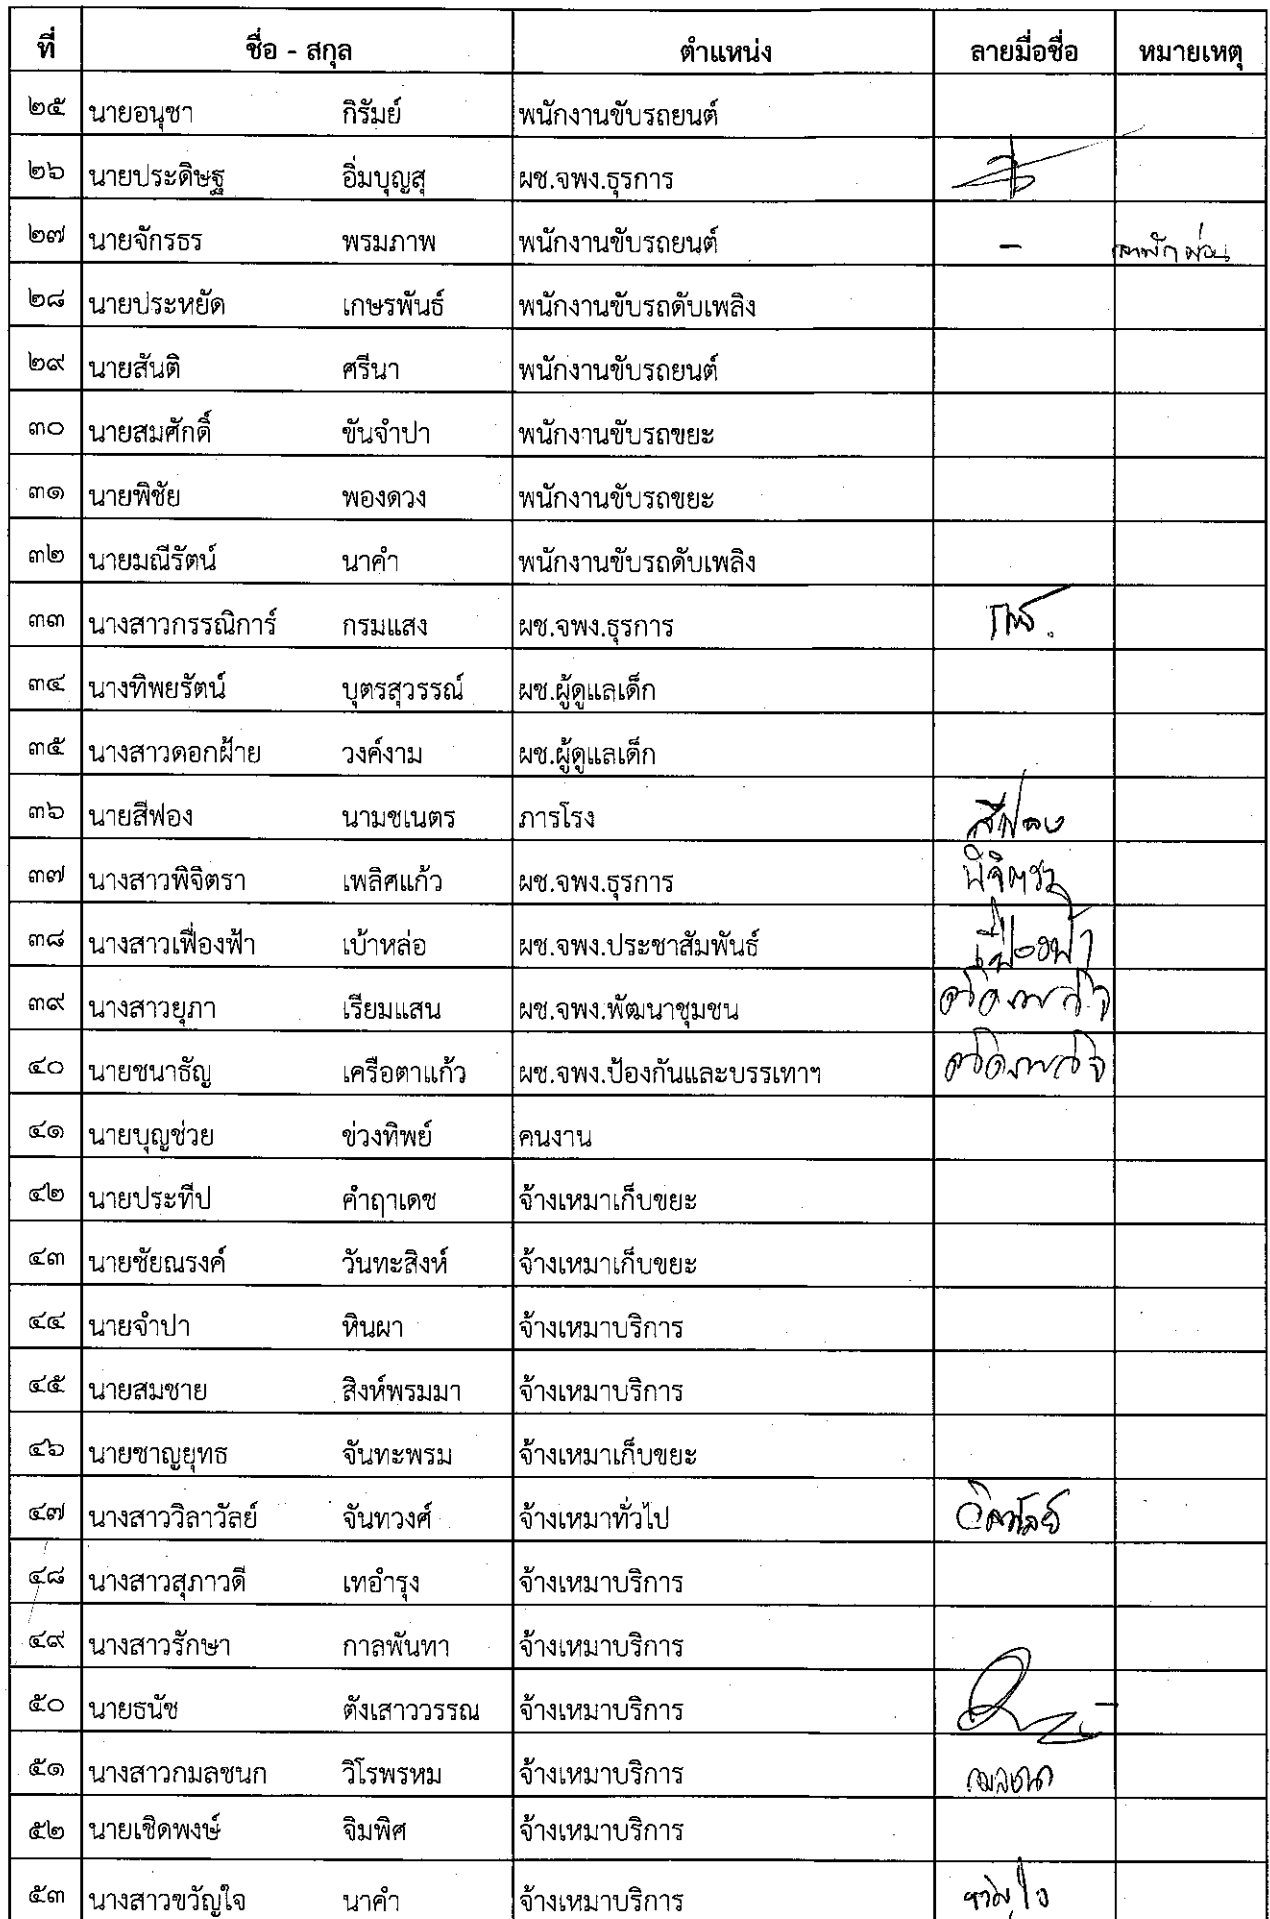 ที่ ชื่อ - สกุล ตำแหน่ง ลายมือชื่อ หมายเหตุ
๒๕ นายอนุชา กิรัมย์ พนักงานขับรถยนต์
๒๖ นายประดิษฐ อิ่มบุญสุ ผช.จพง.ธุรการ
๒๗ นายจักรธร พรมภาพ พนักงานขับรถยนต์ - ลาพักผ่อน
๒๘ นายประหยัด เกษรพันธ์ พนักงานขับรถดับเพลิง
๒๙ นายสันติ ศรีนา พนักงานขับรถยนต์
๓๐ นายสมศักดิ์ ขันจำปา พนักงานขับรถขยะ
๓๑ นายพิชัย พองดวง พนักงานขับรถขยะ
๓๒ นายมณีรัตน์ นาคำ พนักงานขับรถดับเพลิง
๓๓ นางสาวกรรณิการ์ กรมแสง ผช.จพง.ธุรการ
๓๔ นางทิพยรัตน์ บุตรสุวรรณ์ ผช.ผู้ดูแลเด็ก
๓๕ นางสาวดอกฝ้าย วงค์งาม ผช.ผู้ดูแลเด็ก
๓๖ นายสีฟอง นามชเนตร ภารโรง สีฟอง
๓๗ นางสาวพิจิตรา เพลิศแก้ว ผช.จพง.ธุรการ พิจิตรา
๓๘ นางสาวเฟื่องฟ้า เบ้าหล่อ ผช.จพง.ประชาสัมพันธ์ เฟื่องฟ้า
๓๙ นางสาวยุภา เรียมแสน ผช.จพง.พัฒนาชุมชน
๔๐ นายชนาธัญ เครือตาแก้ว ผช.จพง.ป้องกันและบรรเทาฯ
๔๑ นายบุญช่วย ข่วงทิพย์ คนงาน
๔๒ นายประทีป คำฤาเดช จ้างเหมาเก็บขยะ
๔๓ นายชัยณรงค์ วันทะสิงห์ จ้างเหมาเก็บขยะ
๔๔ นายจำปา หินผา จ้างเหมาบริการ
๔๕ นายสมชาย สิงห์พรมมา จ้างเหมาบริการ
๔๖ นายชาญยุทธ จันทะพรม จ้างเหมาเก็บขยะ
๔๗ นางสาววิลาวัลย์ จันทวงศ์ จ้างเหมาทั่วไป วิลาวัลย์
๔๘ นางสาวสุภาวดี เทอำรุง จ้างเหมาบริการ
๔๙ นางสาวรักษา กาลพันทา จ้างเหมาบริการ
๕๐ นายธนัช ตังเสาววรรณ จ้างเหมาบริการ
๕๑ นางสาวกมลชนก วิโรพรหม จ้างเหมาบริการ กมลชนก
๕๒ นายเชิดพงษ์ จิมพิศ จ้างเหมาบริการ
๕๓ นางสาวขวัญใจ นาคำ จ้างเหมาบริการ ขวัญใจ